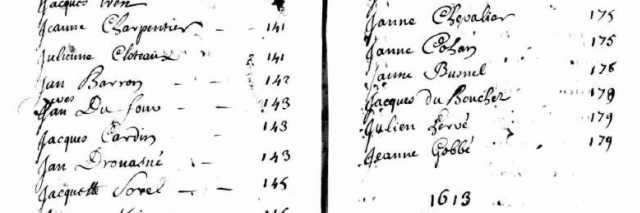 Jacques
Jeanne Charpentier 141
Julienne 141
Jan Barron 142
yves
Jan Du four 143
Jacques Cardin 143
Jan Drouasné 143
Jacquette Sorel 145
Janne Chevalier 175
Janne Cohan 175
Janne Busnel 178
Jacques du Boucher 179
Julien hervé 179
Jeanne Gobbé 179
1613